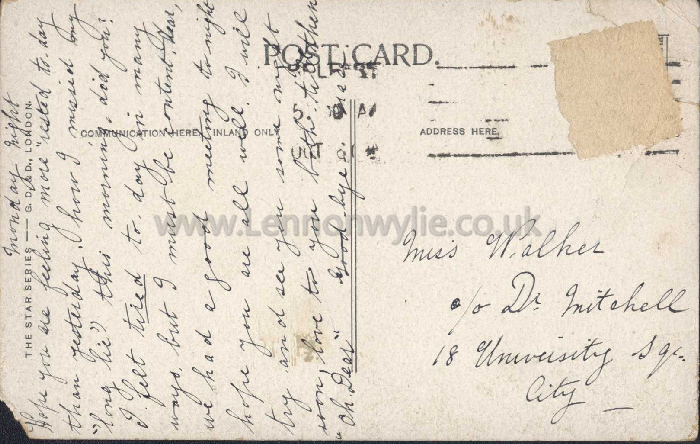 POST CARD.
THE STAR SERIES — G. D. & D., LONDON.
COMMUNICATION HERE, INLAND ONLY
ADDRESS HERE.
BELFAST
Monday night
Hope you are feeling more rested to-day
than yesterday, how I missed my
"long lie" this morning, did you?
I felt tired to-day in many
ways, but I must be content dear,
we had a good meeting to-night
hope you are all well. I will
try and see you some night
soon, love to you both, till then
"Oh Dear" Good bye
Miss Walker
c/o Dr Mitchell
18 University Sqr.
City
www.Lennonwylie.co.uk